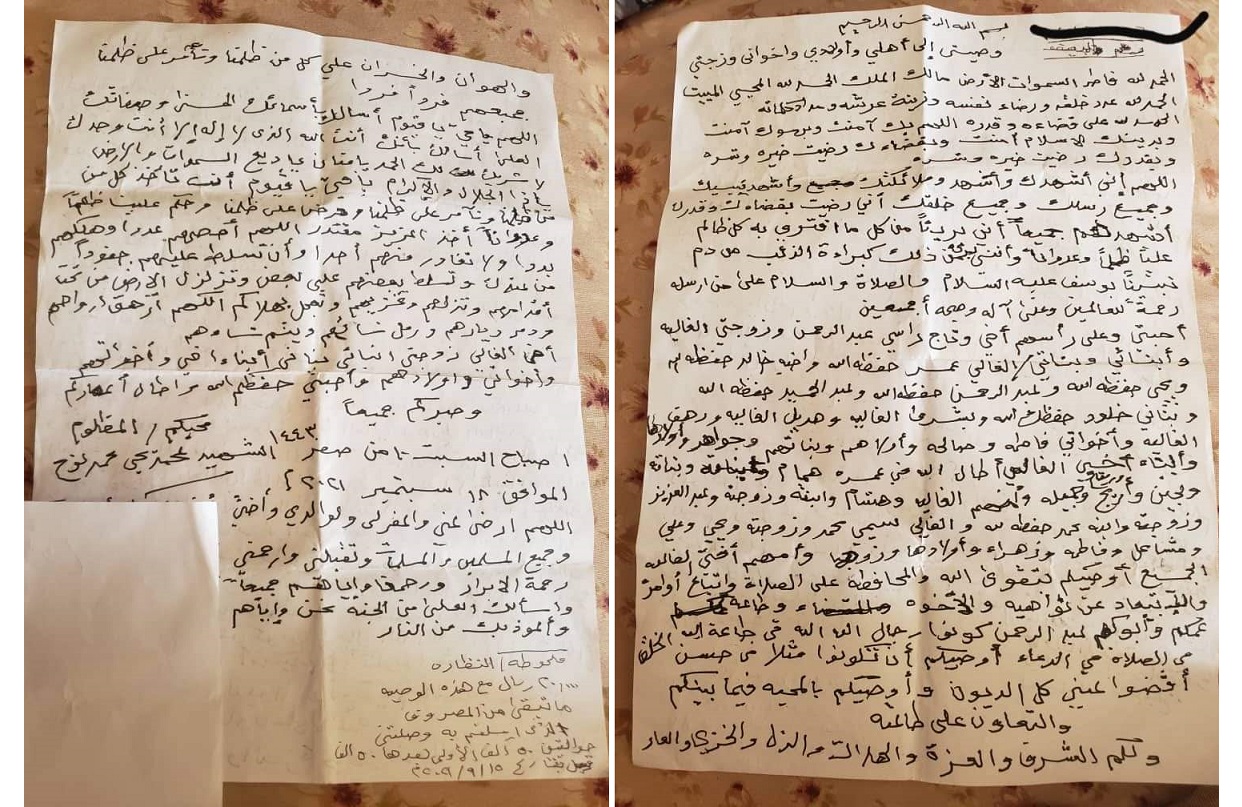 بسم الله الرحمن الرحيم
وصيتي إلى أهلي وأولادي واخواني وزوجتي
الحمد لله فاطر السموات والأرض مالك الملك الحمد لله المحيي المميت
الحمد لله عدد خلقه ورضاء نفسه وزينة عرشه ومداد كلماته
الحمد لله على قضاءه وقدره اللهم بك آمنت وبرسولك آمنت
وبدينك الاسلام آمنت وبقضاءك رضيت خيره وشره
وبقدرك رضيت خيره وشره
اللهم إني أشهدك وأشهد وملائكتك وأشهد نبييك
وجميع رسلك وجميع خلقك أني رضيت بقضاءك وقدرك
أشهدكم جميعاً أني بريئاً من كل ما افترى به كل ظالم
علينا ظلماً وعدواناً وأنني من ذلك كبراءة الذئب من دم
نبينا يوسف عليه السلام والصلاة والسلام على من ارسله
رحمة للعالمين وعلى آله وصحبه أجمعين
أحبتي وعلى رأسهم أخي وتاج راسي عبدالرحمن وزوجتي الغاليه
وأبنائي وبناتي الغالي عمر حفظه الله واخيه خالد حفظه الله
ويحي حفظه الله وعبدالرحمن حفظه الله وعبدالحميد حفظه الله
وبناتي خلود حفظك الله وبشرى الغاليه وهديل الغاليه ورهف
الغاليه وأخواتي فاطمه وصالحه وأولاهم وبناتهم وجواهر وأولادها
وأبناء أخيي الغالي أطال الله في عمره همام وبناته
ولجين وأريج الغاليه وهشام وابنته وزوجته وعبدالعزيز
وزوجته وابنه محمد حفظه الله والغالي سميي محمد وزوجته ويحيى وعلي
ومشاعل وفاطمه وزهراء وأولادها وأمهم أختي الغاليه
الجميع أوصيكم بتقوى الله والمحافظه على الصلاة واتباع أوامره
والابتعاد عن نواهيه والأخوه وطاعة
عمكم وأبوكم عبدالرحمن كونوا رجال الله الله في طاعة الله
في الصلاة في الدعاء أوصيكم أن تكونوا مثلا في حسن الخلق
أقضوا عني كل الديون وأوصيكم بالمحبه فيما بينكم
والتعاون على طاعته
ولكم الشرف والعزة والذل والخزي والعار
والهوان والخسران على كل من ظلمنا وتآمر على ظلمنا
جميعهم فرداً فردا
اللهم يا حي يا قيوم أسألك بأسمائك الحسنى وصفاتك
العلى أسألك بأنك أنت الله الذي لا إله إلا أنت وحدك
لا شريك لك الحمد يا منان يا بديع السموات والارض
يا ذا الجلال والإكرام يا حي يا قيوم أنت تأخذ كل من
ظلمنا وتآمر على ظلمنا وحرض على ظلمنا وحكم علينا ظلماً
وعدواناً أخذ العزيز مقتدر اللهم أحصهم عددا واهلكهم
بددا ولا تغادر منهم أحدا وأن تسلط عليهم جنوداً
من عندك وتسلط بعضهم على بعض وتزلزل الارض من تحت
أقدامهم وتذلهم وتخزيهم وتعجل بهلاكم اللهم ازهق ارواحهم
ودمر ديارهم ورمل نسائهم ويتم
أخي الغالي زوجتي ابنائي بناتي أبناء اخي وأخواتهم
وأخواتي واولادهم وأحبتي حفظكم الله واطال أعماركم
وصبركم جميعاً
محبكم / المظلوم
صباح السبت ١٠ من صفر ١٤٤٣ الشهيد محمد يحي محمد نوح
الموافق ١٨ سبتمبر ٢٠٢١ م
اللهم ارض عني واغفر لي ولوالدي وأخي
وجميع المسلمين والمسلمات وتقبلني وارحمني
رحمة الابرار ورحمنا واياهم جميعاً
واسألك العلى من الجنة نحن وإياهم
وأعوذ بك من النار
ملحوظه / النظاره
٢٠٠٠٠ ريال مع هذه الوصيه
ما تبقى من المصروف
الذي ارسلتم به وصلتني
٥٠ الف الأولى بعدها ٥٠ الف